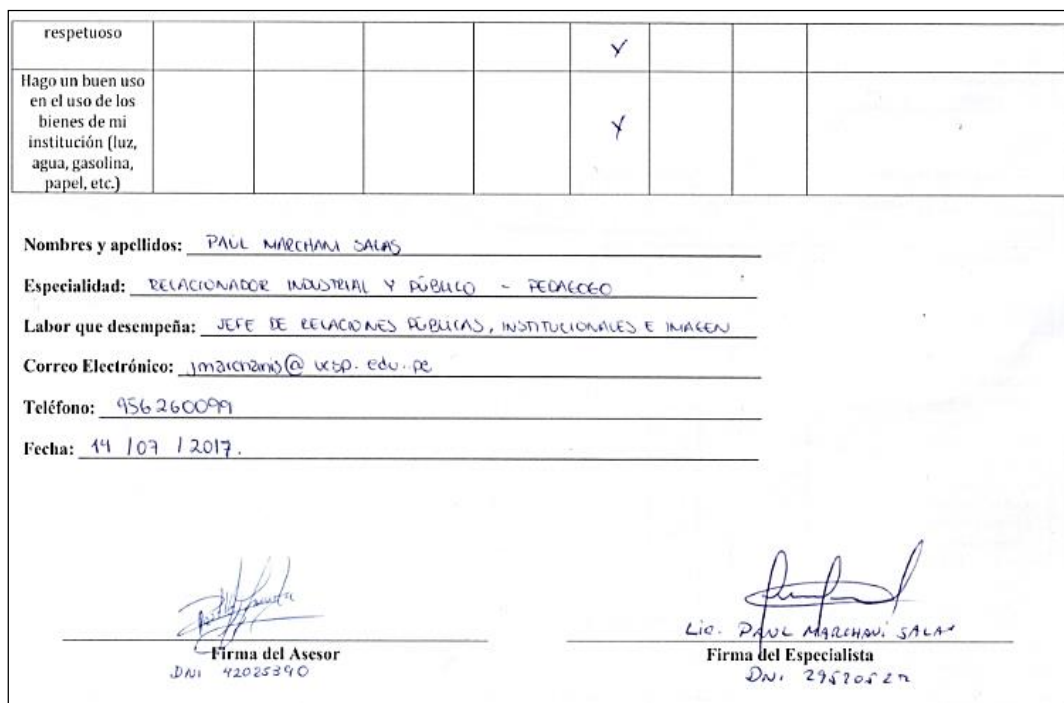 respetuoso
Hago un buen uso
en el uso de los
bienes de mi
institución (luz,
agua, gasolina,
papel, etc.)
Nombres y apellidos: PAÚL MARCHANI SALAS
Especialidad: RELACIONADOR INDUSTRIAL Y PÚBLICO - PEDAGOGO
Labor que desempeña: JEFE DE RELACIONES PÚBLICAS, INSTITUCIONALES E IMAGEN
Correo Electrónico: jmarchanis@ucsp.edu.pe
Teléfono: 956260099
Fecha: 14 / 07 / 2017.
Lic. PAUL MARCHANI SALAS
Firma del Asesor
Firma del Especialista
DNI 42025390
DNI